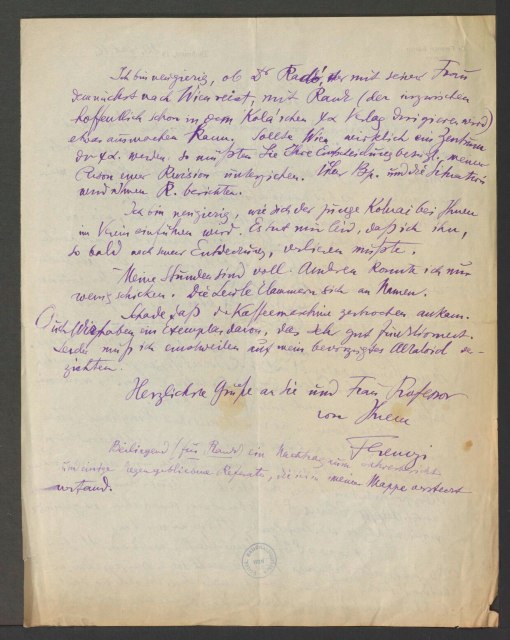 Ich bin neugierig, ob Dr Radó, der mit seiner Frau
demnächst nach Wien reist, mit Rank (der inzwischen
hoffentlich schon in dem Kola'schen ψα Verlag dirigieren wird)
etwas ausmachen kann. Sollte Wien wirklich ein Zentrum
der ψα. werden, so müßten Sie Ihre Entscheidung bezügl. meiner
Person einer Revision unterziehen. Über Bp. und die Situation
wird Ihnen R. berichten.
Ich bin neugierig, wie sich der junge Kolnai bei Ihnen
im Verein einführen wird. Es tut mir leid, daß ich ihn,
so bald nach seiner Entdeckung, verlieren mußte.
Meine Stunden sind voll. Andren konnte ich nur
wenig schicken. Die Leute klammern sich an Namen.
Schade daß die Kaffeemaschine zerbrochen ankam.
Auch wir haben ein Exemplar davon, das sehr gut funktioniert.
Leider muß ich einstweilen auf mein bevorzugtes Alkaloid ver-
zichten.
Herzlichste Grüße an Sie und Frau Professor
von Ihrem
Ferenczi
Beiliegend (für Rank) ein Nachtrag zum Jahresbericht
um einige liegengebliebene Referate, die in meiner Mappe versteckt